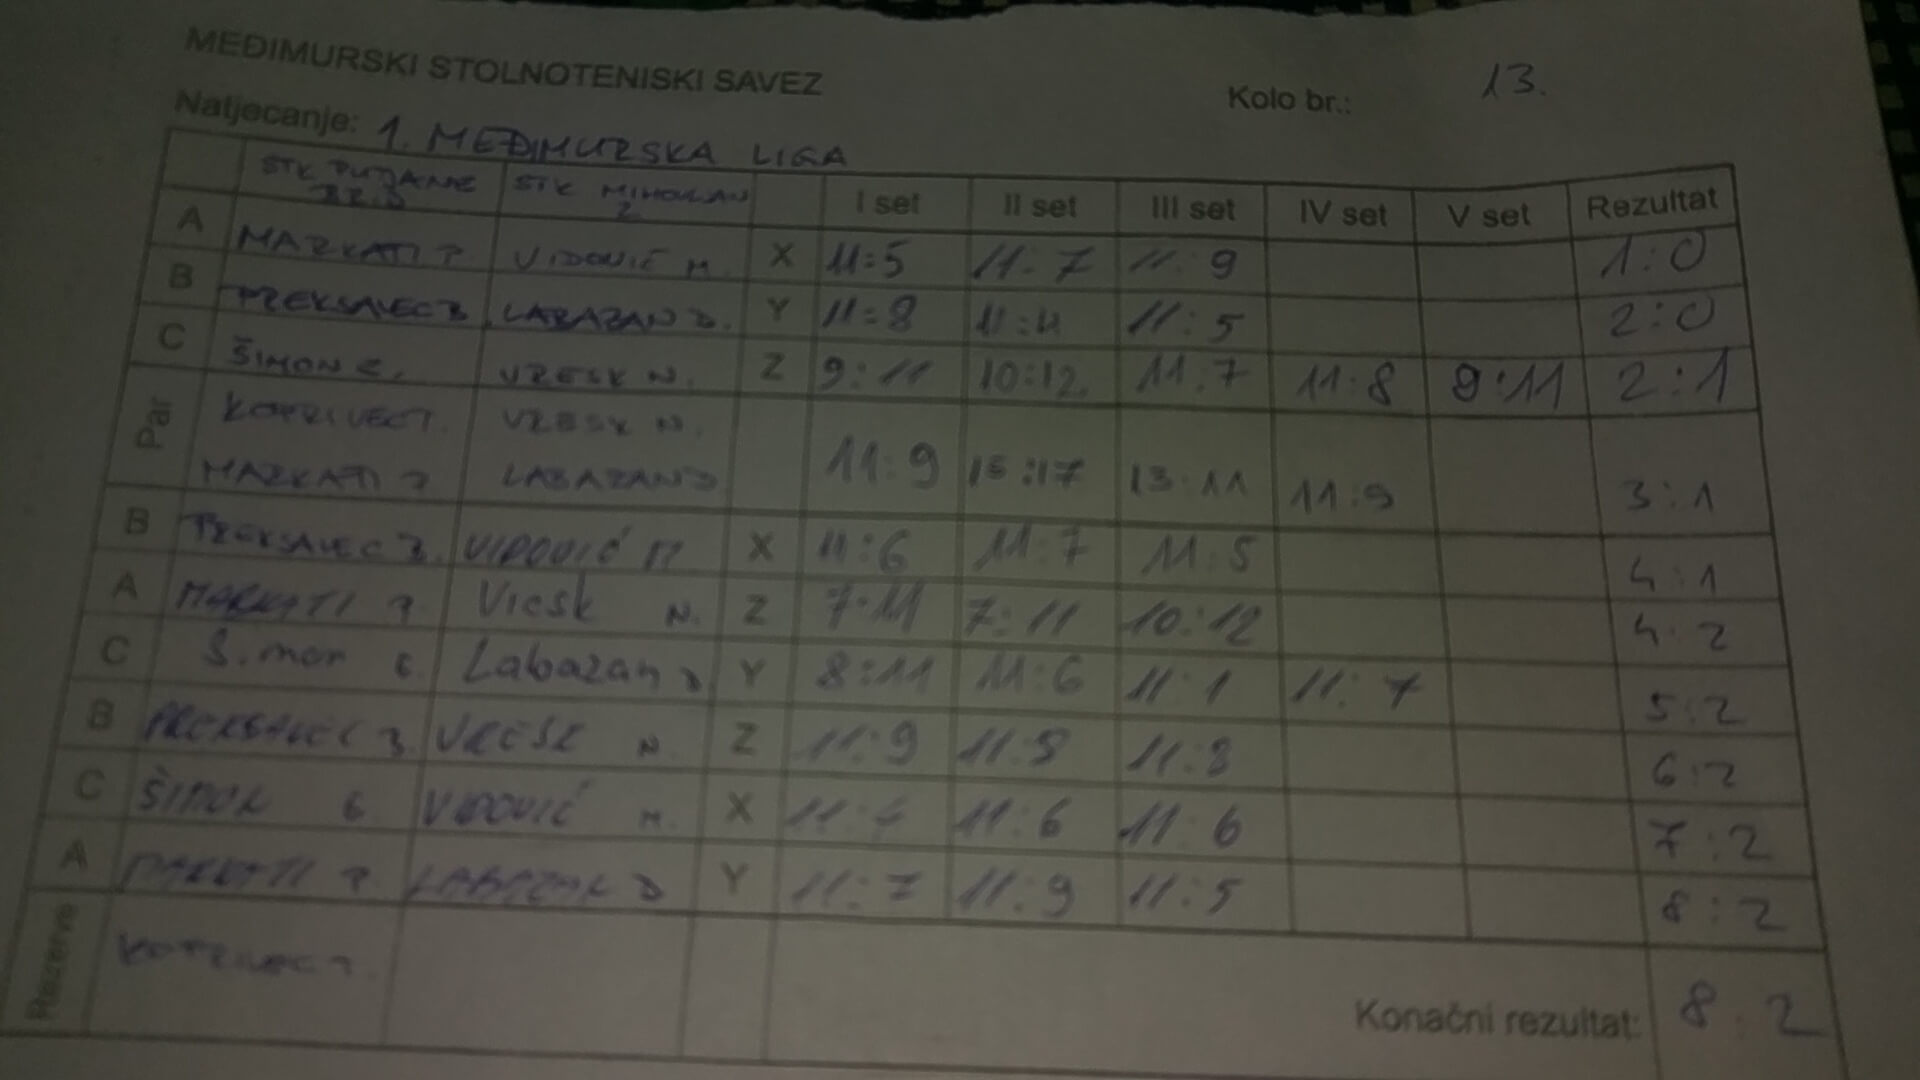 MEĐIMURSKI STOLNOTENISKI SAVEZ
Kolo br.: 13.
Natjecanje: 1. MEĐIMURSKA LIGA
STK STK MIHOVLJAN I set II set III set IV set V set Rezultat
2
A MARKATI VIDOVIĆ M. X 11:5 11:7 11:9 1:0
B PREKSAVEC LABAZAN D. Y 11:8 11:5 2:0
C ŠIMON VRESK N. Z 9:11 10:12 11:7 11:8 9:11 2:1
Par KOPRIVEC T. VRESK N.
MARKATI LABAZAN D 11:9 15:17 13:11 11:9 3:1
B PREKSAVEC VIDOVIĆ M X 11:6 11:7 11:5 4:1
A MARKATI Vresk N. Z 7:11 7:11 10:12 4:2
C Šimon Labazan D Y 8:11 11:6 11:1 11:7 5:2
B PREKSAVEC VRESK N. Z 11:9 11:8 11:8 6:2
C ŠIMON VIDOVIĆ M. X 11:6 11:6 7:2
A MARKATI LABAZAN D Y 11:7 11:9 11:5 8:2
Rezerve KOPRIVEC
Konačni rezultat: 8:2